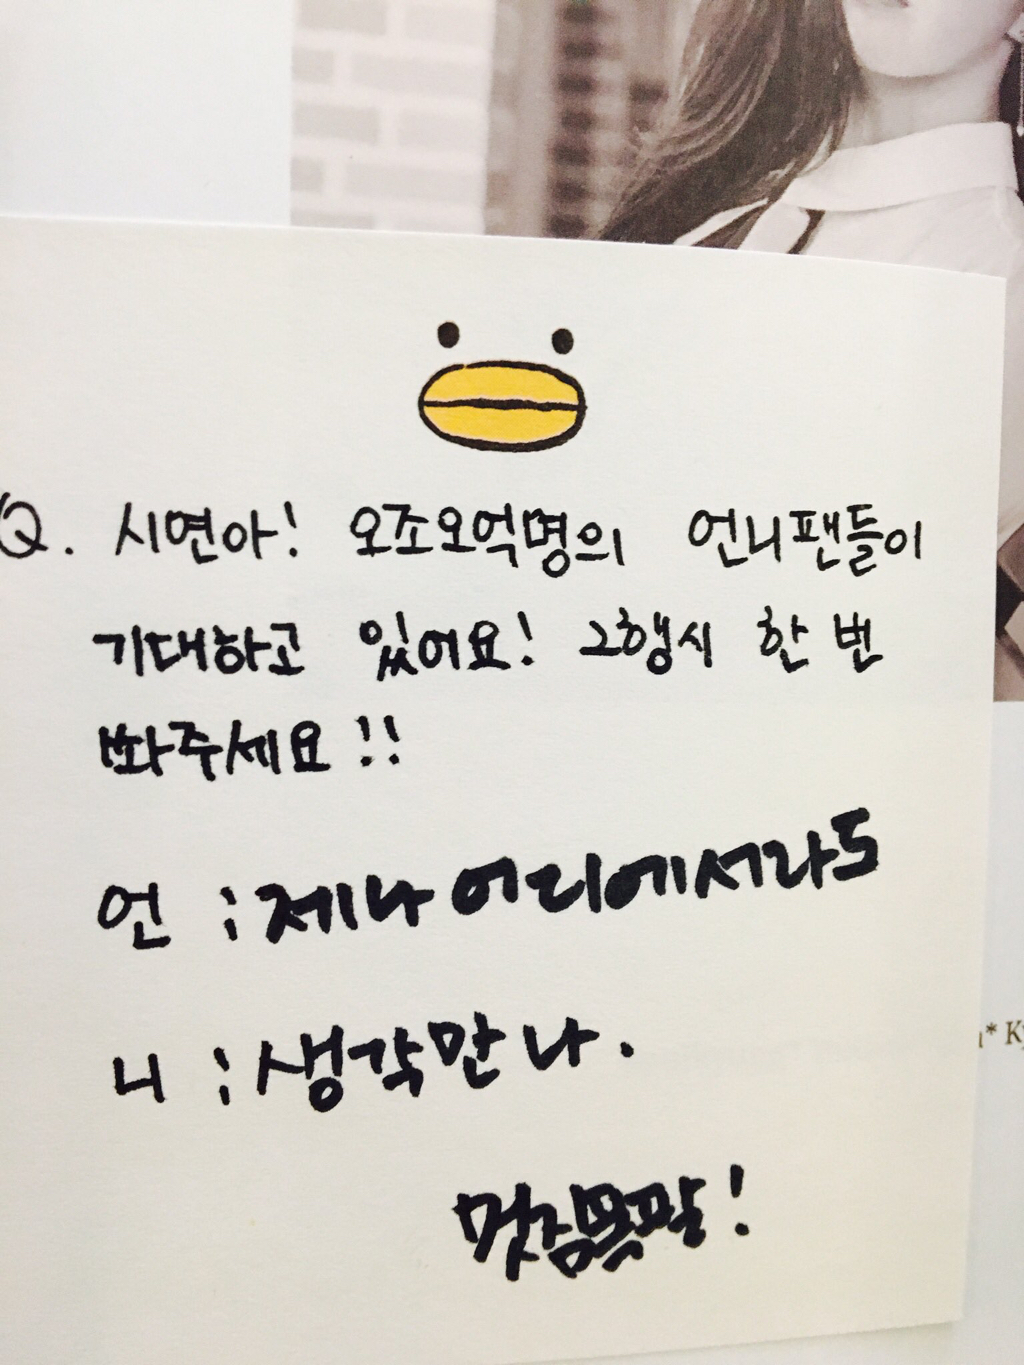 Q. 시연아! 오조오억명의 언니팬들이
기대하고 있어요! 2행시 한 번
봐주세요!!
언 : 제나 어디에서라도
니 : 생각만 나.
멋짐뿜팔!
* Ky